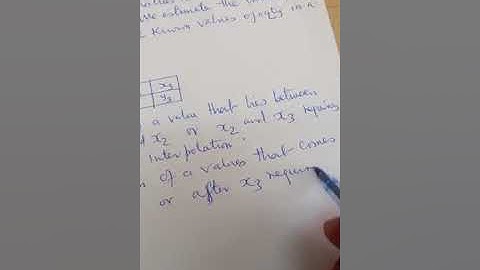 estimate the
known values of qty in a
x3
y3
a value that lies between
x2 or x2 and x3 requires
interpolation.
of a values that comes
or after x3 requires